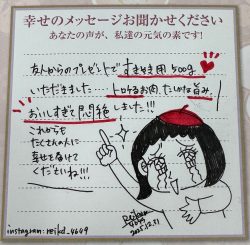 幸せのメッセージお聞かせください
あなたの声が、私達の元気の素です!
友人からのプレゼントですきやき用500g
いただきました… トロけるお肉、たしかな旨み、
おいしすぎて悶絶しました!!!
これからも
たくさんの人に
幸せを届けて
くださいね!!!
Reiko
4649
2025.12.31
instagram:reiko_4649